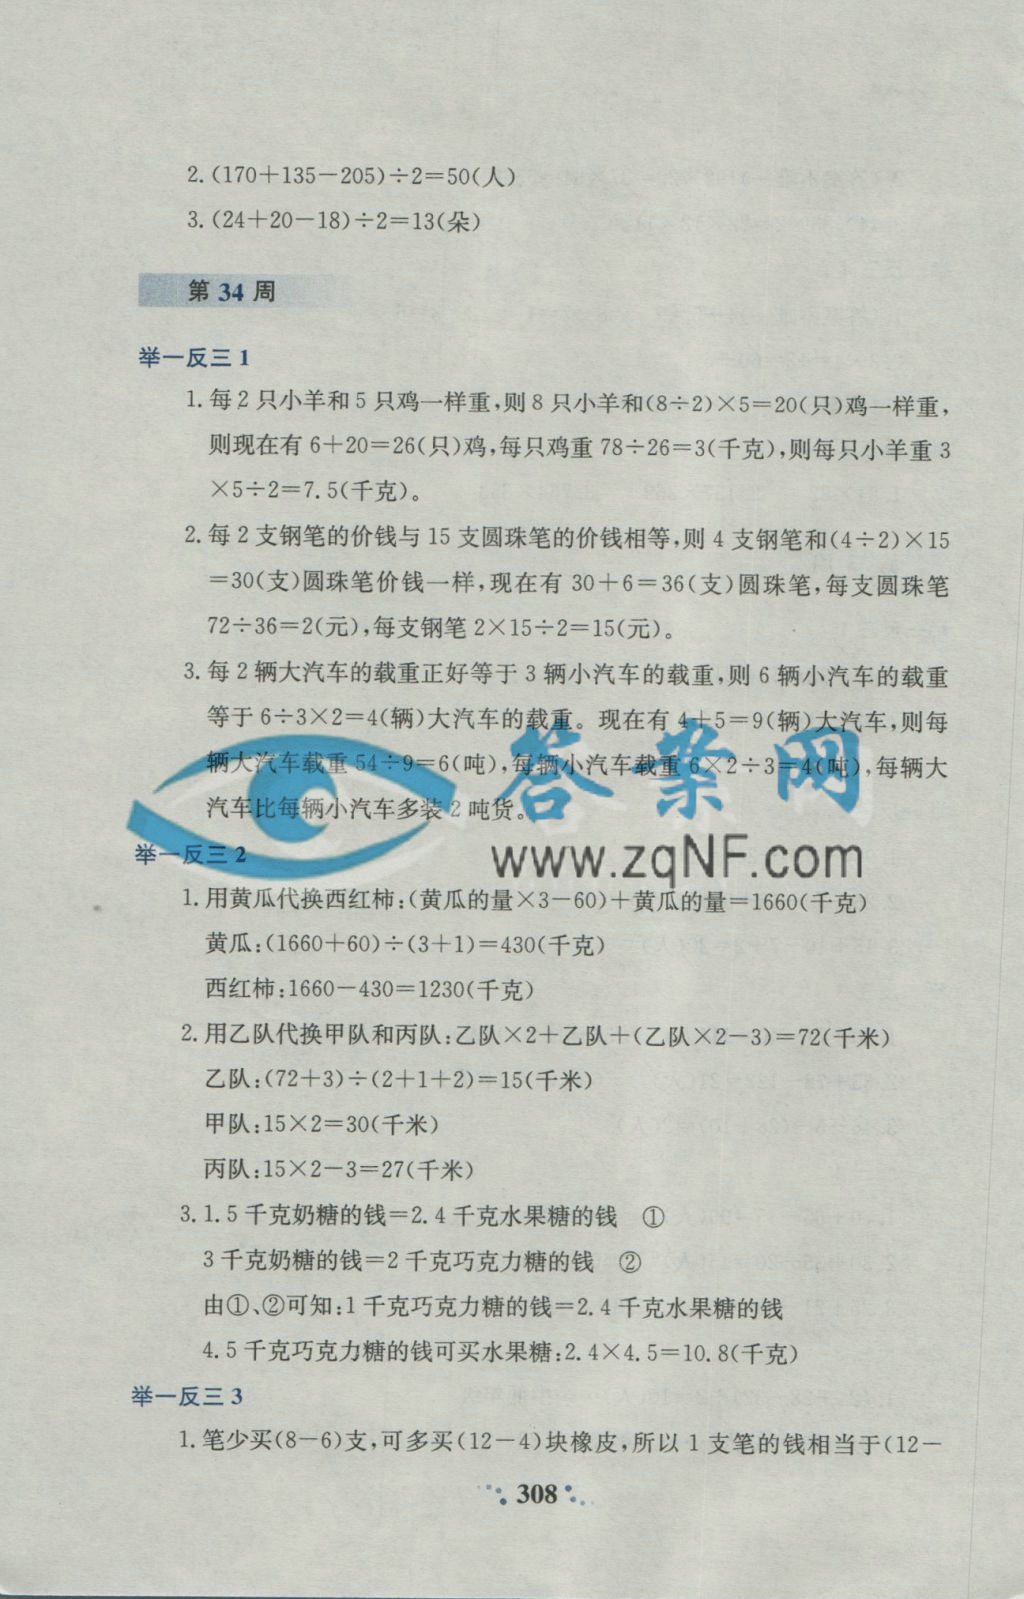 2. (170+135-205)÷2=50(人)
3. (24+20-18)÷2=13(朵)
第 34 周
举一反三 1
1. 每 2 只小羊和 5 只鸡一样重,则 8 只小羊和(8÷2)×5=20(只)鸡一样重,
则现在有 6+20=26(只)鸡,每只鸡重 78÷26=3(千克),则每只小羊重 3
×5÷2=7.5(千克)。
2. 每 2 支钢笔的价钱与 15 支圆珠笔的价钱相等,则 4 支钢笔和(4÷2)×15
=30(支)圆珠笔价钱一样,现在有 30+6=36(支)圆珠笔,每支圆珠笔
72÷36=2(元),每支钢笔 2×15÷2=15(元)。
3. 每 2 辆大汽车的载重正好等于 3 辆小汽车的载重,则 6 辆小汽车的载重
等于 6÷3×2=4(辆)大汽车的载重。现在有 4+5=9(辆)大汽车,则每
辆大汽车载重 54÷9=6(吨),每辆小汽车载重 6×2÷3=4(吨),每辆大
汽车比每辆小汽车多装 2 吨货。
答案网
www.zqNF.com
举一反三 2
1. 用黄瓜代换西红柿:(黄瓜的量×3-60)+黄瓜的量=1660(千克)
黄瓜:(1660+60)÷(3+1)=430(千克)
西红柿:1660-430=1230(千克)
2. 用乙队代换甲队和丙队:乙队×2+乙队+(乙队×2-3)=72(千米)
乙队:(72+3)÷(2+1+2)=15(千米)
甲队:15×2=30(千米)
丙队:15×2-3=27(千米)
3. 1.5 千克奶糖的钱=2.4 千克水果糖的钱 ①
3 千克奶糖的钱=2 千克巧克力糖的钱 ②
由①、②可知:1 千克巧克力糖的钱=2.4 千克水果糖的钱
4.5 千克巧克力糖的钱可买水果糖:2.4×4.5=10.8(千克)
举一反三 3
1. 笔少买(8-6)支,可多买(12-4)块橡皮,所以 1 支笔的钱相当于(12-
308